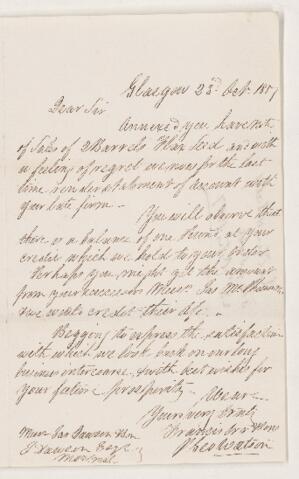 Glasgow 23d Oct. 1857
Dear Sir
Annexed you have
of Sale of Barrels Flax Seed and with
a feeling of regret we now for the last
time render a statement of account with
your late firm.
You will observe that
there is a balance of one Pound at your
credit which we hold to your order
Perhaps you might get the amount
from your successors Messrs. Jas
& we will credit their a/c.
Begging to express the satisfaction
with which we look back on our long
business intercourse & with best wishes for
your future prosperity.
We are
Yours very truly
Francis
Watson
Messrs Jas Dawson
Dawson Esqr
Montreal